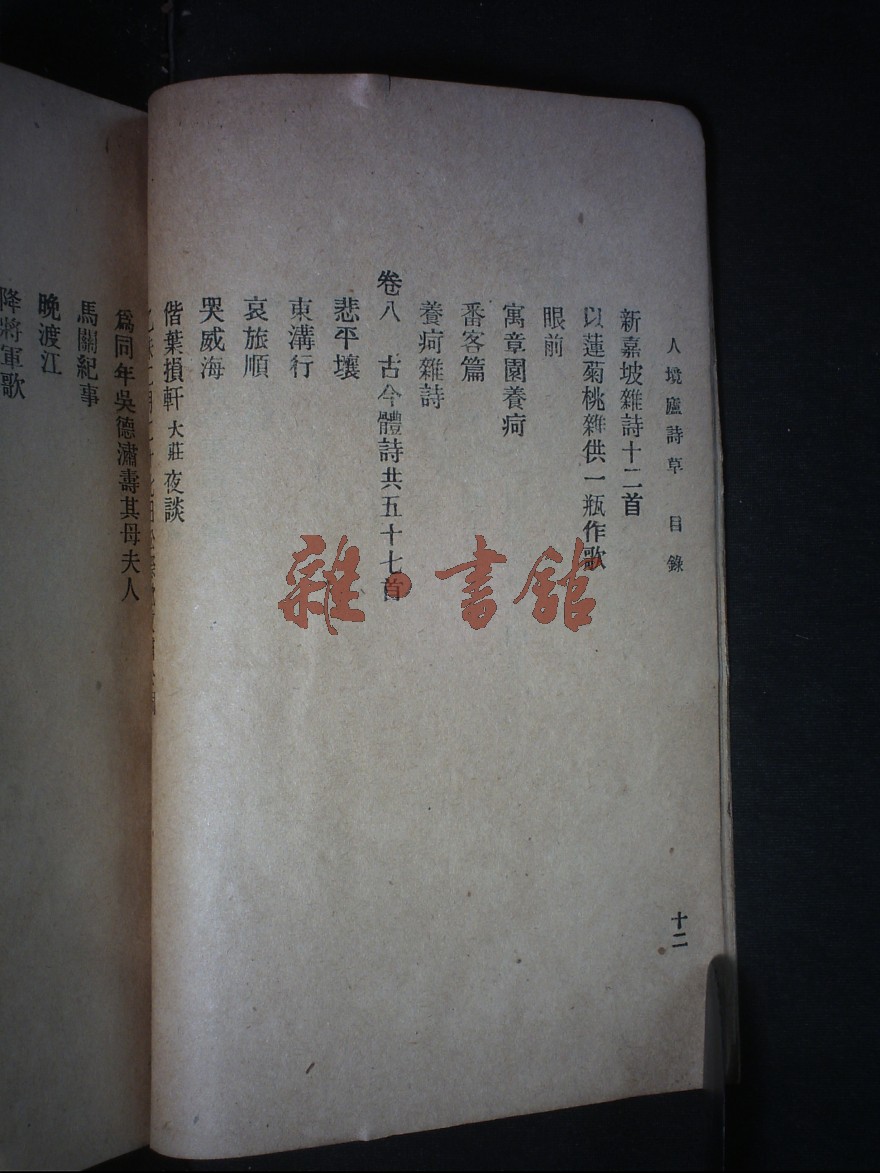 人境廬詩草 目錄
十二
新嘉坡雜詩十二首
以蓮菊桃雜供一瓶作歌
眼前
寓章園養疴
番客篇
養疴雜詩
卷八 古今體詩共五十七首
悲平壤
東溝行
哀旅順
哭威海
偕葉損軒大莊夜談
爲同年吳德潚壽其母夫人
馬關紀事
晚渡江
降將軍歌
雜·書館